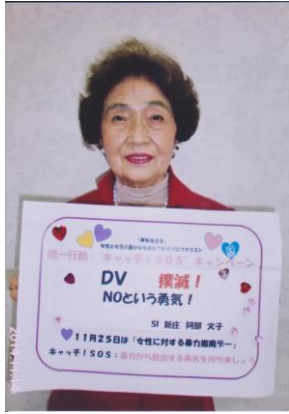 「夢を拓く」
統一行動！"キャッチ！SOS" キャンペーン
DV　撲滅！
NOという勇気！
SI 新庄 阿部 文子
11月25日は「女性に対する暴力撤廃デー」
キャッチ！SOS：暴力から脱出する勇気を持ちましょう